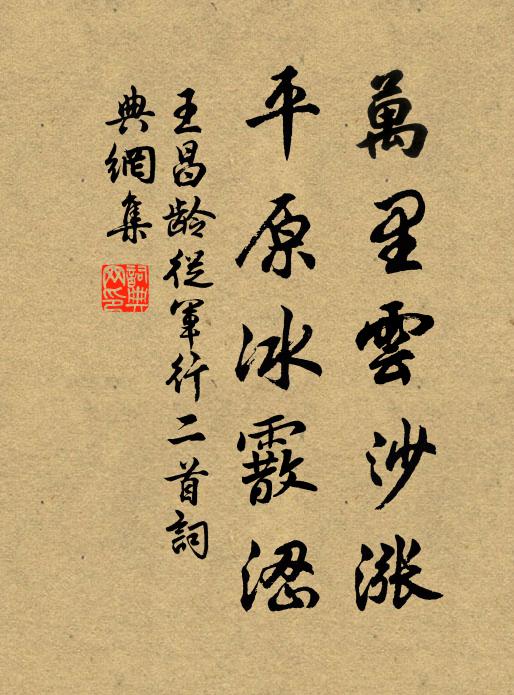 萬里雲沙漲
平原冰霰澀
王昌龄從軍行二首詞
典網集
詞典網印